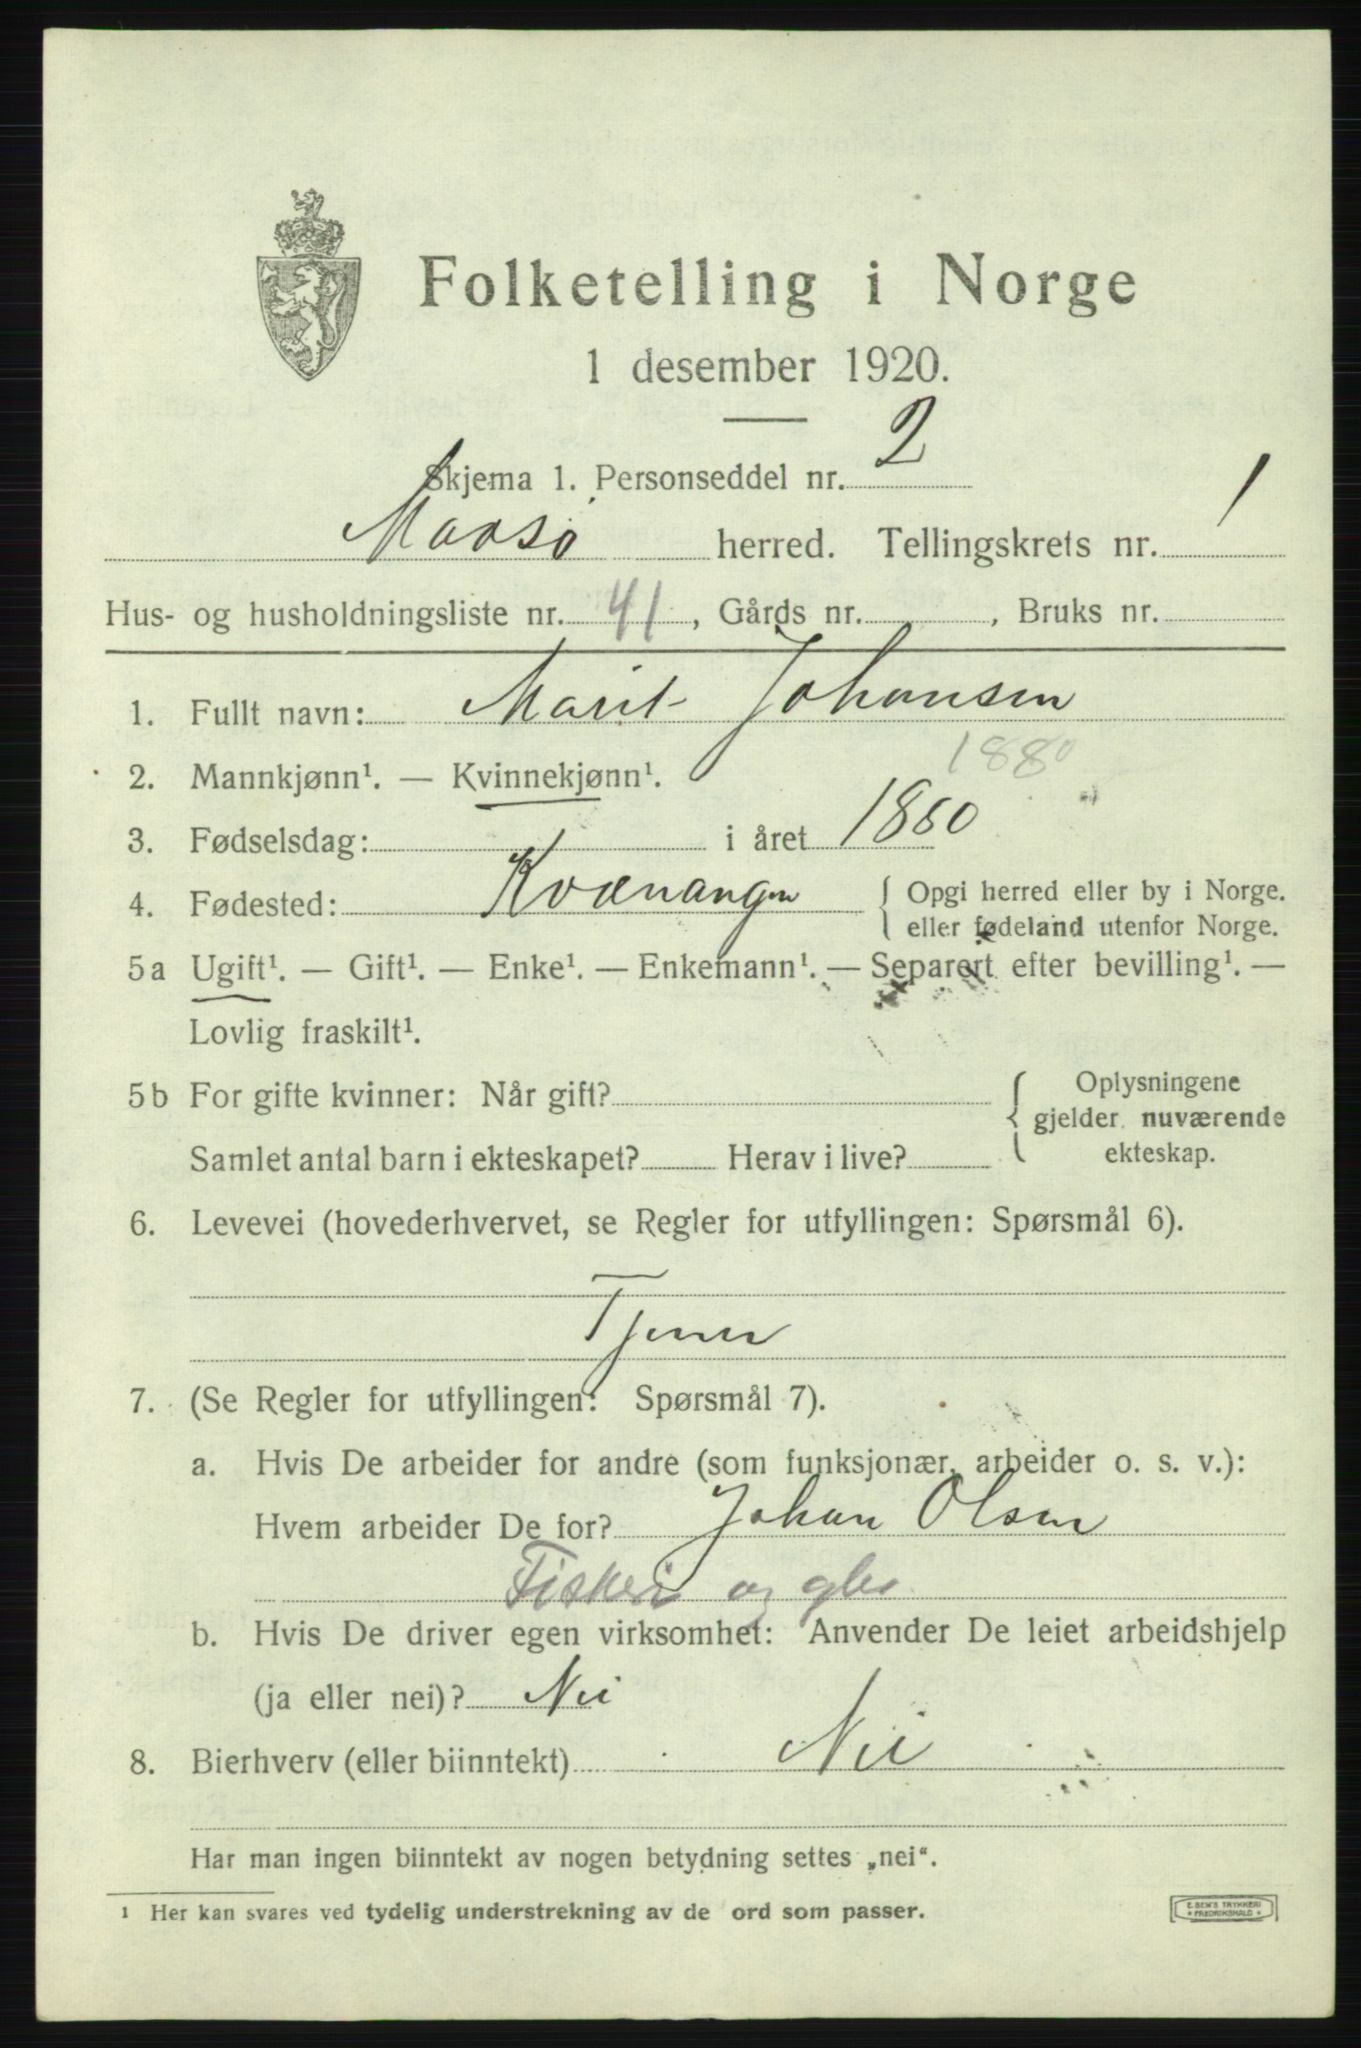 Folketelling i Norge
1 desember 1920.
Skjema 1. Personseddel nr. 2
Maasø herred. Tellingskrets nr. 1
Hus- og husholdningsliste nr. 41, Gårds nr. , Bruks nr.
1. Fullt navn: Marit Johansen
1880
2. Mannkjønn¹. — Kvinnekjønn¹.
3. Fødselsdag: i året 1860
4. Fødested: Kvænangen { Opgi herred eller by i Norge.
eller fødeland utenfor Norge.
5a Ugift¹. — Gift¹. — Enke¹. — Enkemann¹. — Separert efter bevilling¹. —
Lovlig fraskilt¹.
5b For gifte kvinner: Når gift? { Oplysningene
gjelder nuværende
Samlet antal barn i ekteskapet? Herav i live? ekteskap.
6. Levevei (hovederhvervet, se Regler for utfyllingen: Spørsmål 6).
Tjener
7. (Se Regler for utfyllingen: Spørsmål 7).
a. Hvis De arbeider for andre (som funksjonær, arbeider o. s. v.):
Hvem arbeider De for? Johan Olsen
Fiskeri og
b. Hvis De driver egen virksomhet: Anvender De leiet arbeidshjelp
(ja eller nei)? Nei
8. Bierhverv (eller biinntekt) Nei
Har man ingen biinntekt av nogen betydning settes „nei“.
¹ Her kan svares ved tydelig understrekning av de ord som passer.
E SEM'S TRYKKERI
* FREDRIKSHALD *